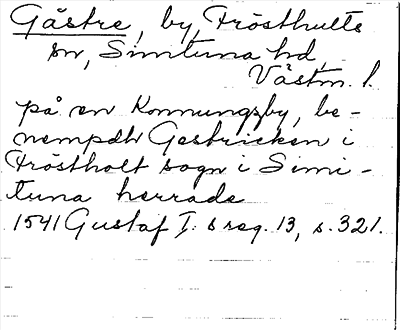 Gästre, by, Frösthults
sn, Simtuna hd,
Västm. l.
på en Konnungsby, be-
nempdh Gestricken i
Fröstholt sogn i Simi-
tuna herrade
1541 Gustaf I:s reg. 13, s. 321.